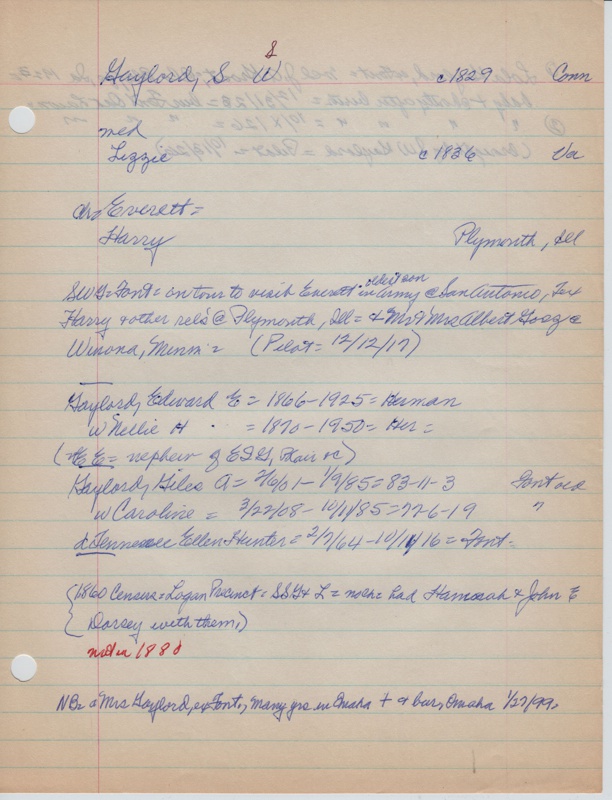 S
Gaylord, S W c1829 Conn
med
Lizzie c1836 Va
ch= Everett=
Harry Plymouth, Ill
oldest son
SWG=Font= on tour to visit Everett in Army @ San Antonio, Tex
Harry + other rels @ Plymouth, Ill = + Mr + Mrs Albert @
Winona, Minn = (Pilot= 12/12/17)
Gaylord, Edward E = 1866-1925= Herman
w Nellie H = 1870-1950= Her =
(EE= nephew of EGG, Blair rc)
Gaylord, Giles A= 2/6/01- 1/9/85=83-11-3 Font cem
w Caroline = 3/22/08- 10/11/85=77-6-19 "
d Tennessee Ellen Hunter= 2/7/64-10/ /16= Font=
(1860 Census= Logan Precinct= SSG + L = noch= had Hannah + John E
Dorsey with them,)
not in 1880
NB= a Mrs Gaylord, ex Font., many yrs in Omaha + + bur, Omaha 1/27/99.